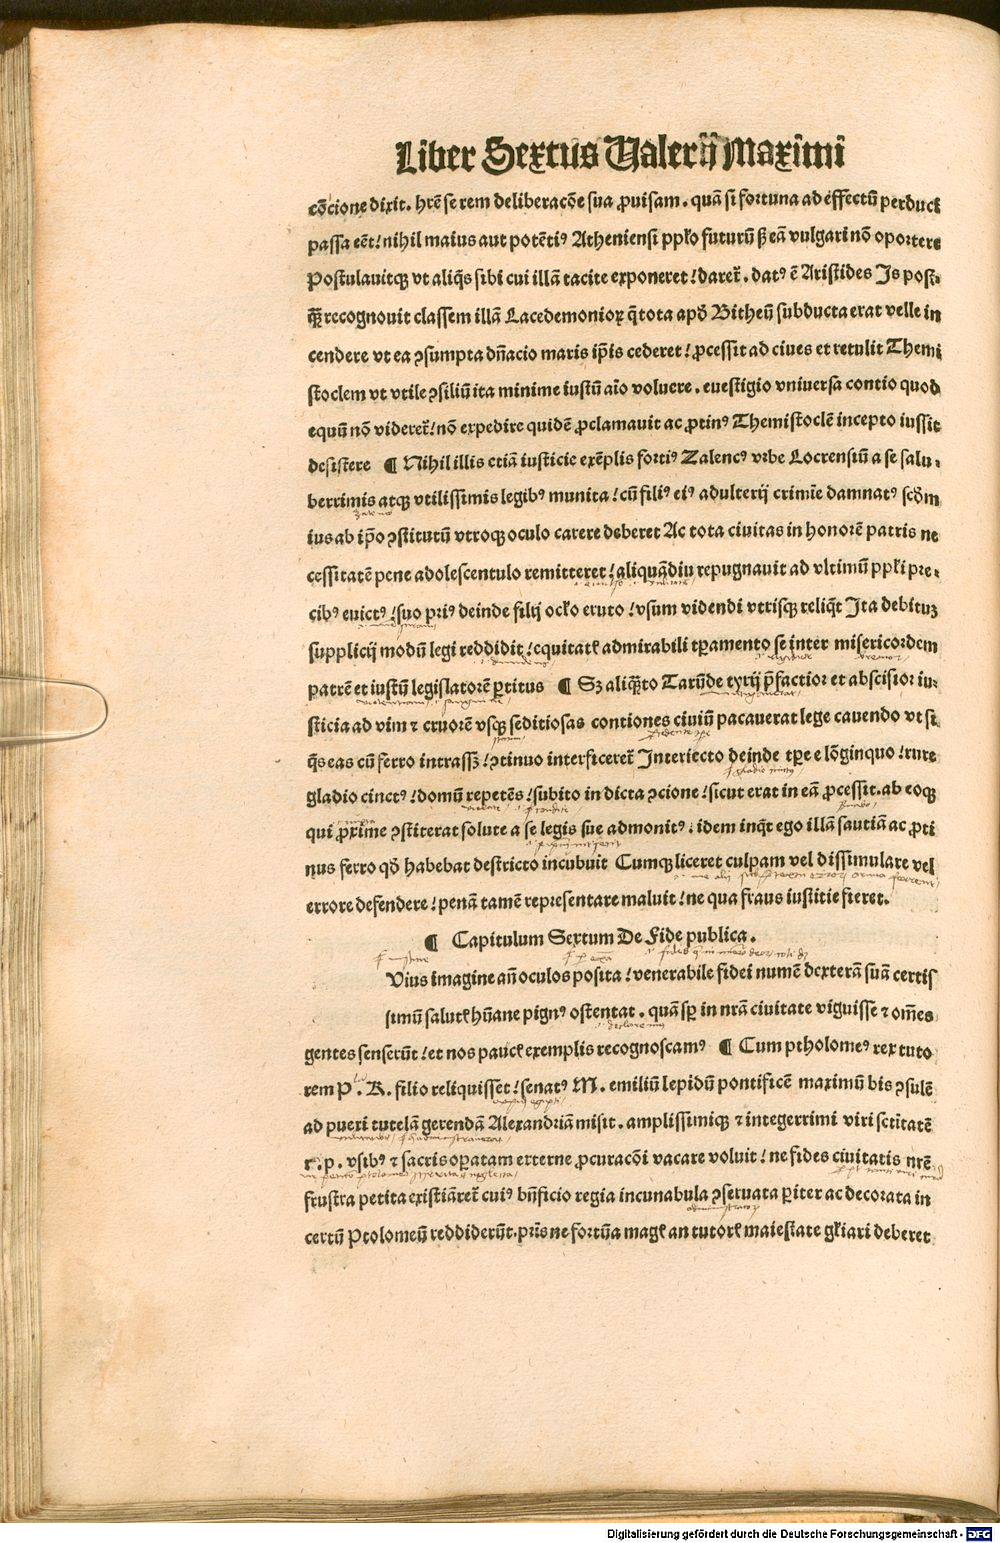 Liber Sextus Ualerij Maximi
cōcione dixit. hrē se rem deliberacōe sua ꝓuisam. quā si fortuna ad effectū perduci
passa eēt / nihil maius aut potēti⁹ Atheniensi ppl̄o futurū ß eā vulgari nō oportere
Postulauitqꝫ vt aliq̄s sibi cui illā tacite exponeret / daret̄. dat⁹ ē Aristides Is post
qꝫ̄ recognouit classem illā Lacedemonioꝝ q̄ tota apd̄ Bitheū subducta erat velle in
cendere vt ea ꝯsumpta dn̄acio maris ip̄is cederet / ꝓcessit ad ciues et retulit Themi
stoclem vt vtile ꝯsiliū ita minime iustū aīo voluere. euestigio vniuersa contio quod
equū nō videret̄ / nō expedire quidē ꝓclamauit ac ꝓtin⁹ Themistoclē incepto iussit
desistere ¶ Nihil illis etiā iusticie exēplis forti⁹ Zalenc⁹ vrbe Locrensiū a se salu⸗
berrimis atqꝫ vtilissimis legib⁹ munita / cū fili⁹ ei⁹ adulterij crimīe damnat⁹ scd̄m
ius ab ip̄o ꝯstitutū vtroqꝫ oculo carere deberet Ac tota ciuitas in honorē patris ne
cessitatē pene adolescentulo remitteret / aliquādiu repugnauit ad vltimū ppl̄i pre⸗
cib⁹ euict⁹ / suo pri⁹ deinde filij ocl̄o eruto / vsum videndi vtrisqꝫ reliq̄t Ita debituꝫ
supplicij modū legi reddidit / equitatꝭ admirabili tꝑamento se inter misericordem
patrē et iustū legislatorē ꝑtitus ¶ Sꝫ aliqꝫ̄to Tarūde tyrij p̄factior et abscisior iu⸗
sticia ad vim ⁊ cruorē vsqꝫ seditiosas contiones ciuiū pacauerat lege cauendo vt si
q̄s eas cū ferro intrassꝫ / ꝯtinuo interficeret̄ Interiecto deinde tꝑe e lōginquo / rure
gladio cinct⁹ / domū repetēs / subito in dicta ꝯcione / sicut erat in eā ꝓcessit. ab eoqꝫ
qui ꝓxime ꝯstiterat solute a se legis sue admonit⁹. idem inq̄t ego illā sautiā ac ꝓti
nus ferro qd̄ habebat destricto incubuit Cumqꝫ liceret culpam vel dissimulare vel
errore defendere / penā tamē representare maluit / ne qua fraus iustitie fieret.
¶ Capitulum Sextum De Fide publica.
Vius imagine an̄ oculos posita / venerabile fidei numē dexterā suā certis
simū salutꝭ hūane pign⁹ ostentat. quā sꝑ in nr̄a ciuitate viguisse ⁊ om̄es
gentes senserūt / et nos paucꝭ exemplis recognoscam⁹ ¶ Cum ptholome⁹ rex tuto
rem P. R. filio reliquisset / senat⁹ M. emiliū lepidū pontificē maximū bis ꝯsulē
ad pueri tutelā gerendā Alexandriā misit. amplissimiqꝫ ⁊ integerrimi viri sctītatē
r. p. vsib⁹ ⁊ sacris oꝑatam externe ꝓcuracōi vacare voluit / ne fides ciuitatis nrē
frustra petita existiāret̄ cui⁹ bn̄ficio regia incunabula ꝯseruata ꝑiter ac decorata in
certū Ptolomeū reddiderūt. pr̄is ne fortūa magꝭ an tutorꝭ maiestate gl̄iari deberet
Digitalisierung gefördert durch die Deutsche Forschungsgemeinschaft - DFG